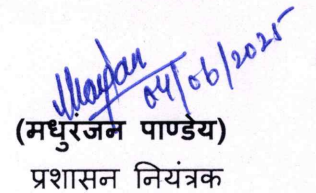 04/06/2025
(मधुरंजन पाण्डेय)
प्रशासन नियंत्रक